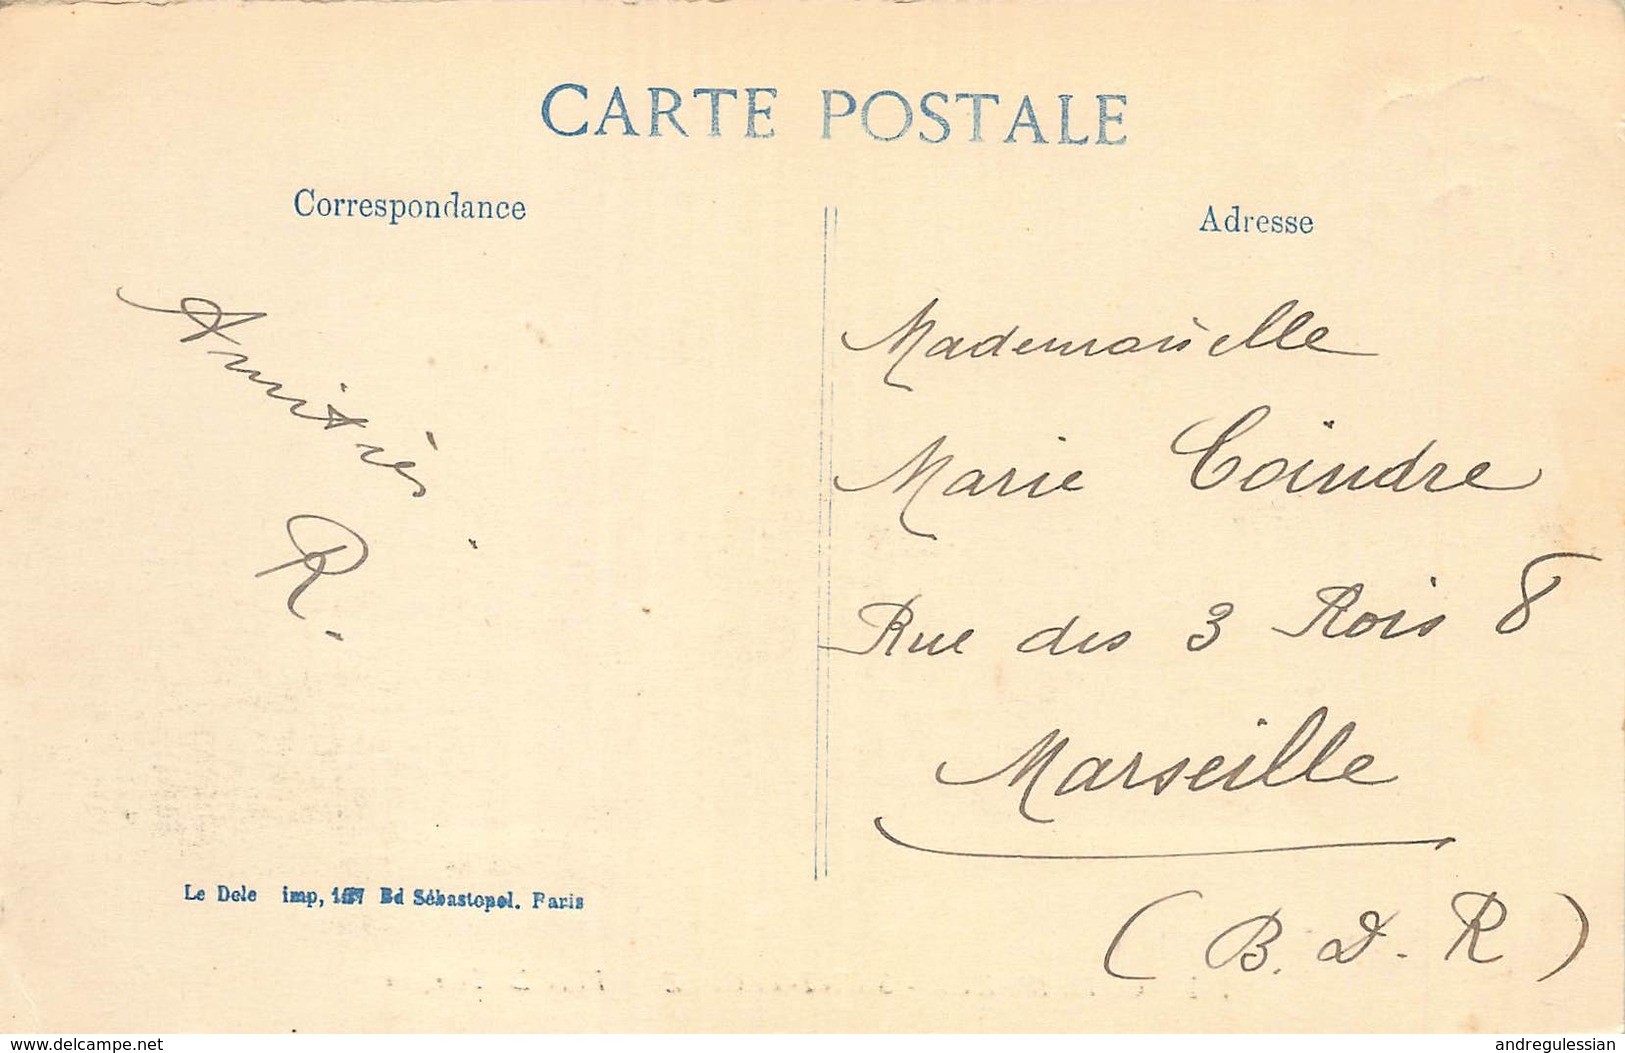 CARTE POSTALE
Correspondance
Adresse
Amitiés
R.
Mademoiselle
Marie Coindre
Rue des 3 Rois 8
Marseille
(B. D. R)
Le Dele imp, Bd Sébastopol. Paris
delcampe.net
andregulessian